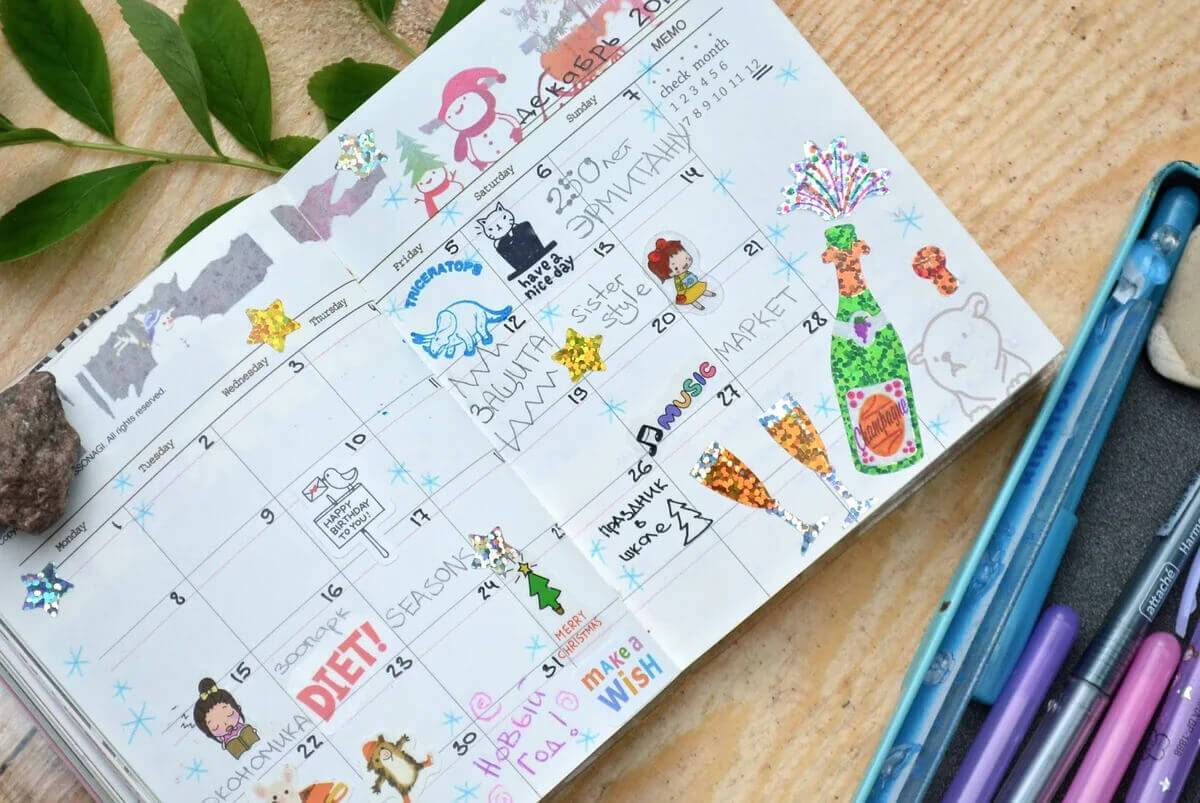 декабрь 201
MEMO
check month
1 2 3 4 5 6
7 8 9 10 11 12
Monday
Tuesday
Wednesday
Thursday
Friday
Saturday
Sunday
SSONAGI. All rights reserved.
1
2
3
5
TRICERATOPS
6
have a
nice day
7
250 лет
ЭРМИТАЖУ
8
9
10
HAPPY
BIRTHDAY
TO YOU!
12
ЗАЩИТА
13
sister
style
14
15
ЭКОНОМИКА
16
зоопарк
DIET!
17
SEASONS
19
20
MUSIC
21
МАРКЕТ
22
23
24
MERRY
CHRISTMAS
26
ПРАЗДНИК
в
школе
27
28
Champagne
30
31
Новый
Год!
make a
WISH
attaché